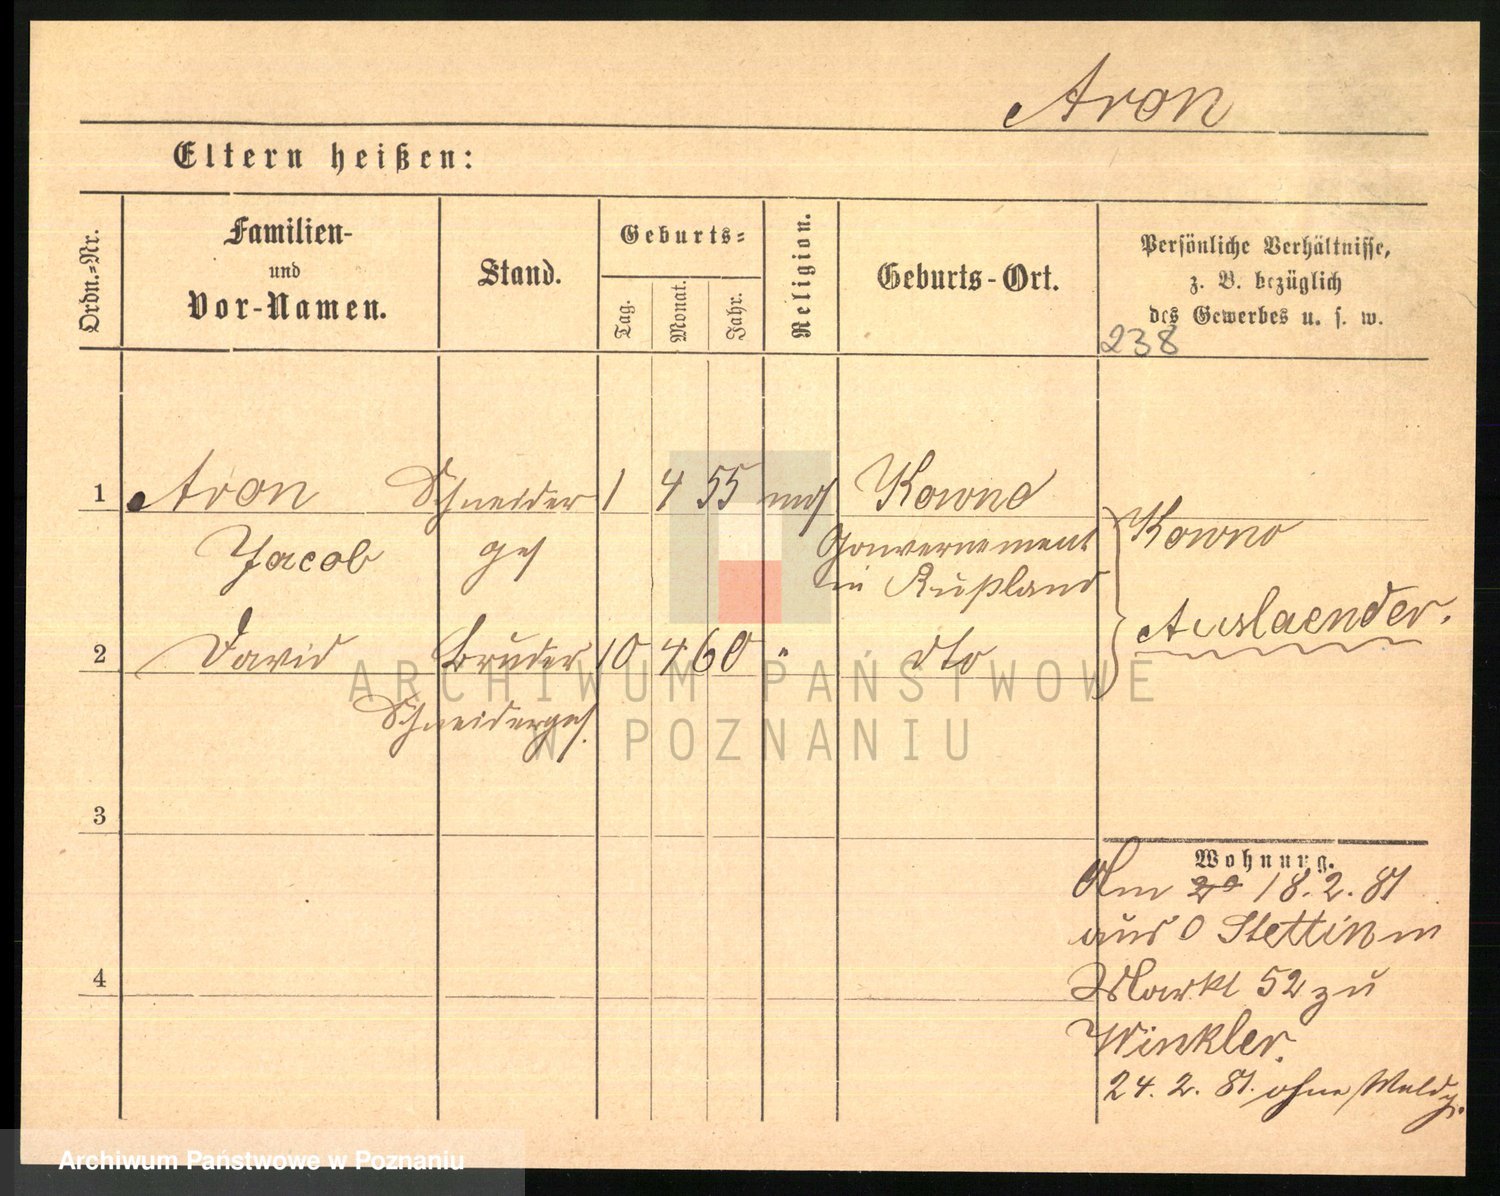 Aron
Eltern heißen:
Ordn.-Nr.
Familien-
und
Vor-Namen.
Stand.
Geburts-
Tag.
Monat.
Jahr.
Religion.
Geburts-Ort.
Persönliche Verhältnisse,
z. B. bezüglich
des Gewerbes u. s. w.
238
1 Aron Schneider 1 4 55 mos Kowno
Jacob ges Gouvernement
in Rußland
Kowno
Auslaender.
2 David Bruder 10 4 60 " dto
Schneiderges.
3
4
Wohnung.
Am 20 18.2.81
aus Stettin
Markt 52 zu
Winkler.
24.2.81. ohne Meldg.
ARCHIWUM PAŃSTWOWE
W POZNANIU
Archiwum Państwowe w Poznaniu